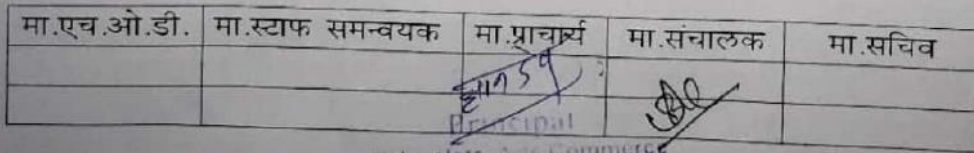 मा.एच.ओ.डी. मा.स्टाफ समन्वयक मा.प्राचार्य मा.संचालक मा.सचिव
Principal
Commerce